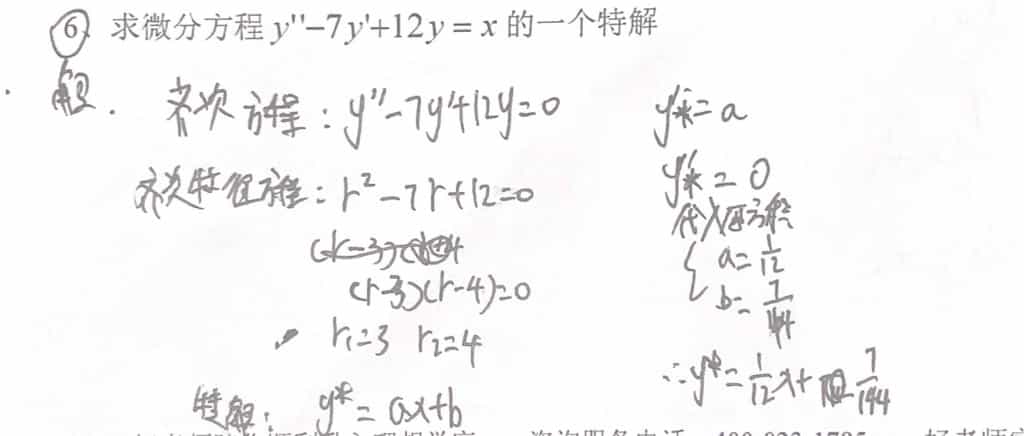 6. 求微分方程 y''-7y'+12y = x 的一个特解
解.
齐次方程: y''-7y'+12y=0
齐次特征方程: r²-7r+12=0
(r-3)(r-4)=0
r₁=3 r₂=4
特解: y*=ax+b
y*'=a
y*''=0
代入原方程
{ a=1/12
b=7/144
∴y*=1/12x+7/144